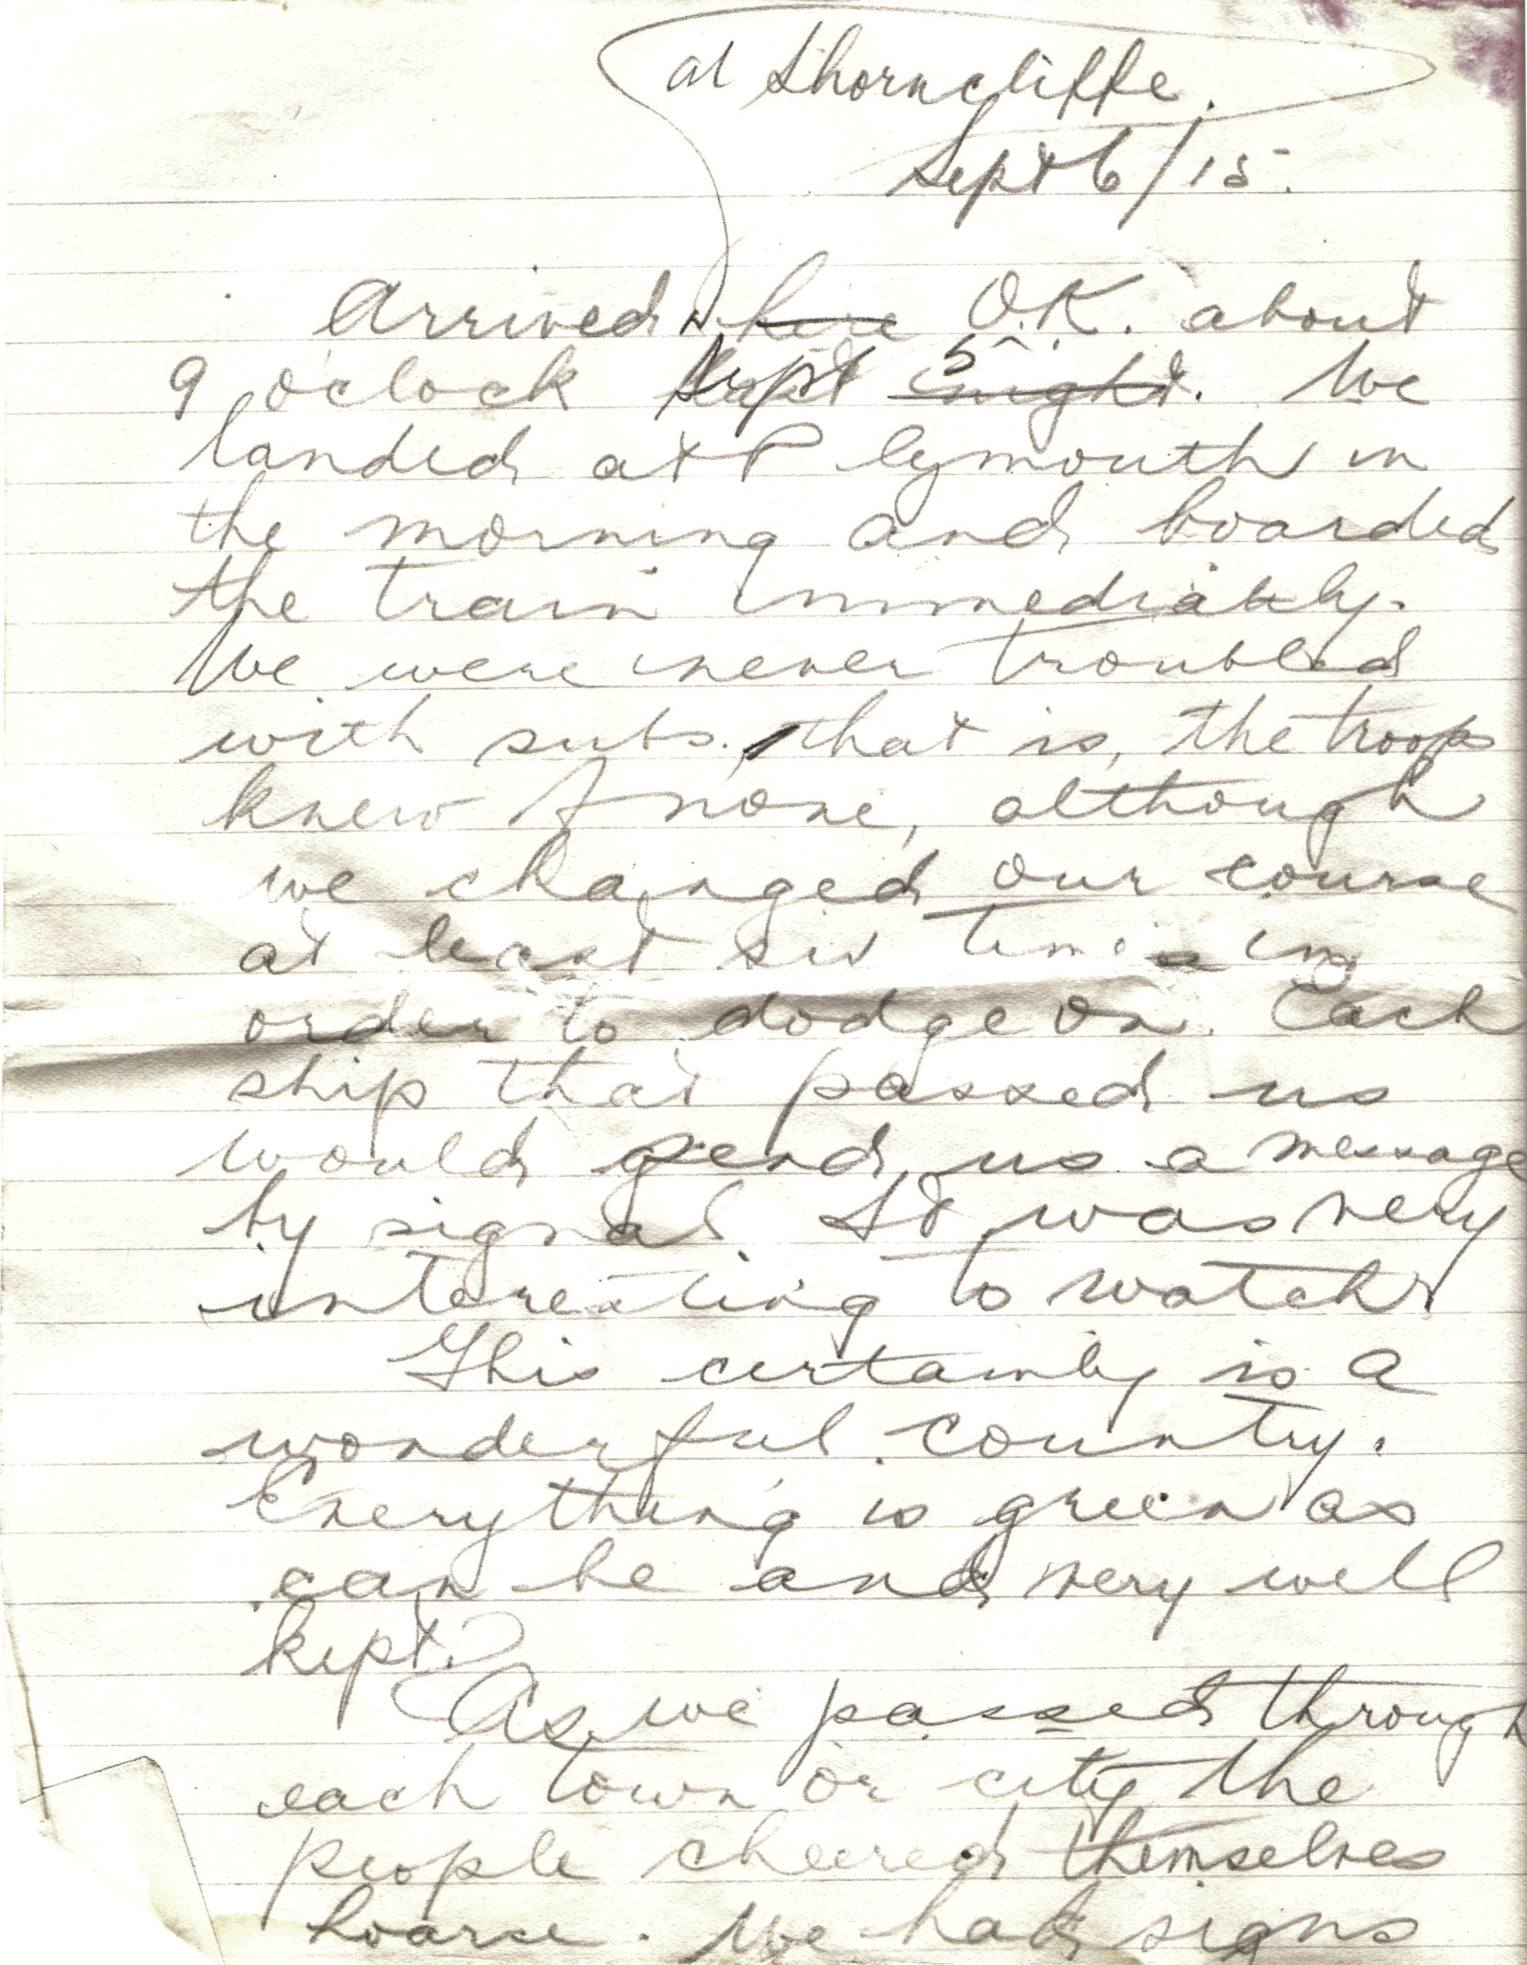 at Shorncliffe.
Sept 6/15.
Arrived here O.K. about
9 o'clock Sept 5 night. We
landed at Plymouth in
the morning and boarded
the train immediately.
We were never troubled
with subs., that is, the troops
knew of none, although
we changed our course
at least six times in
order to dodge on. Each
ship that passed us
would send us a message
by signal. It was very
interesting to watch
This certainly is a
wonderful country.
Everything is green as
can be and very well
kept.
As we passed through
each town or city the
people cheered themselves
hoarse. We had signs